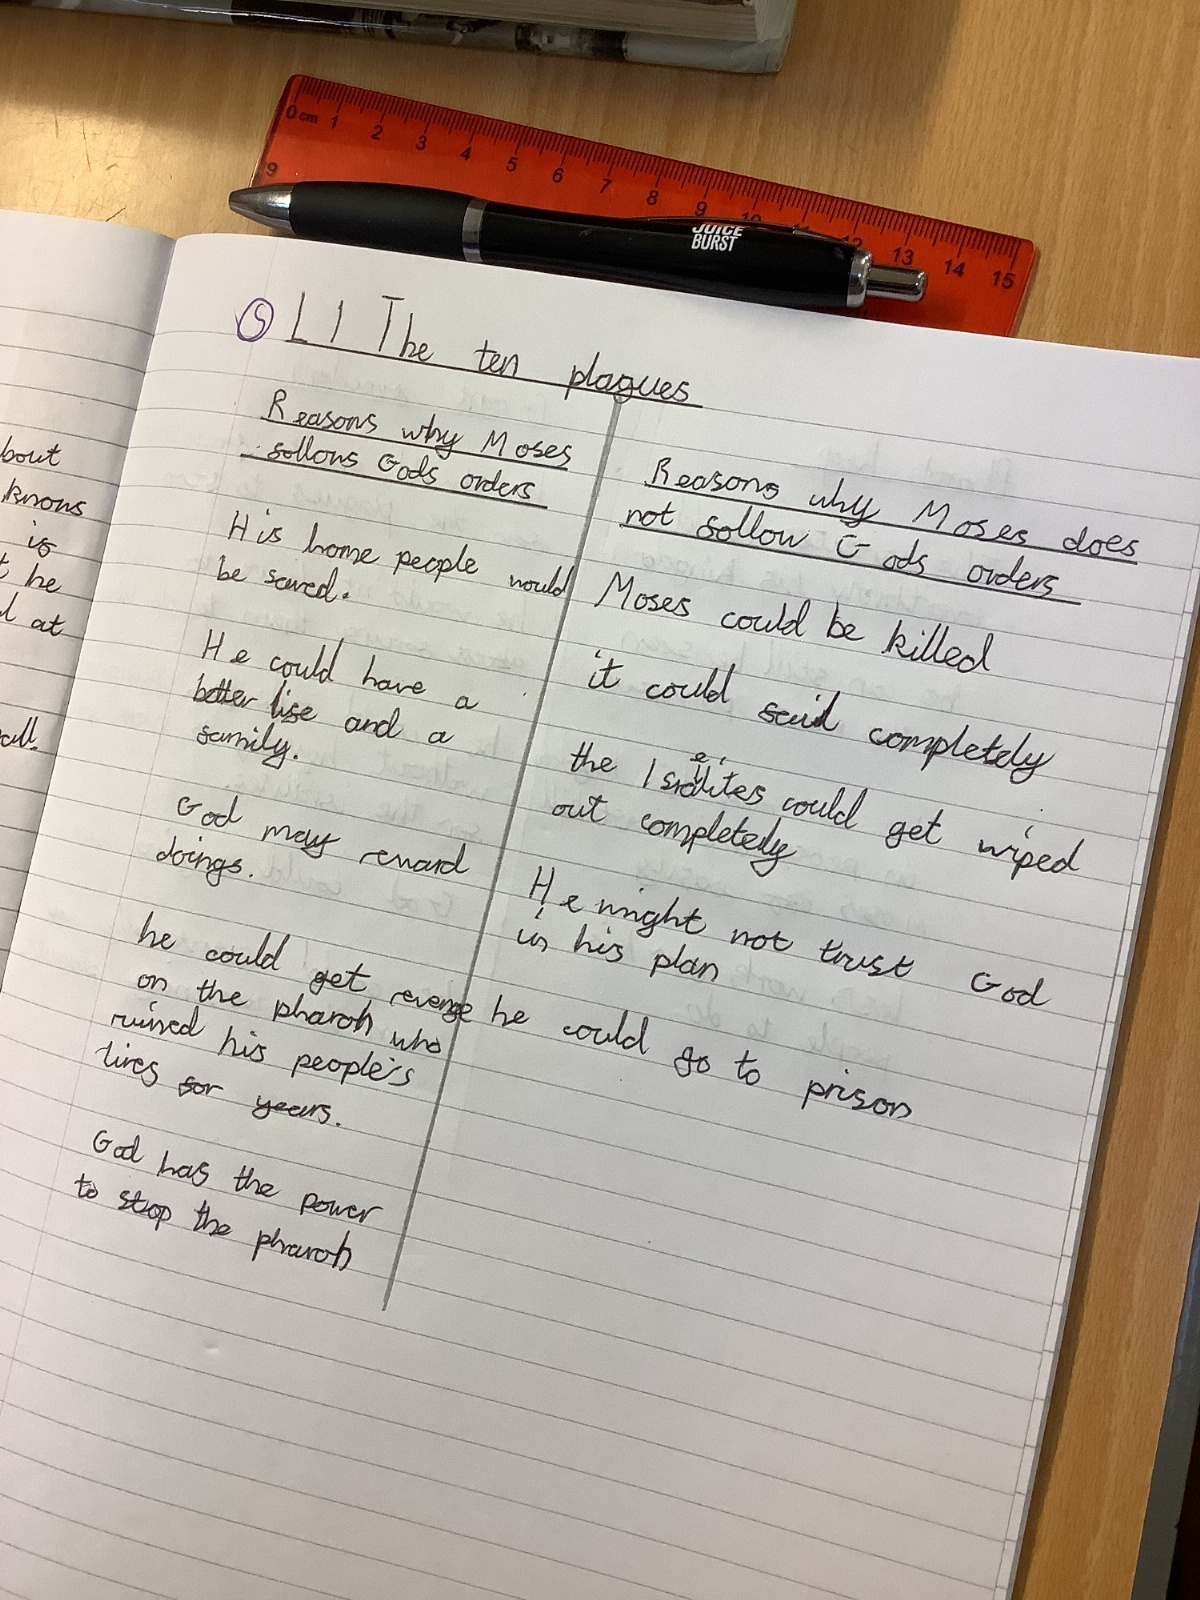 0cm 1 2 3 4 5 6 7 8 9 10 11 12 13 14 15
9
JUICE
BURST
S L1 The ten plagues
Reasons why Moses
follows Gods orders
His home people would
be saved.
He could have a
better life and a
family.
God may reward
doings.
he could get revenge
on the pharoh who
ruined his people's
lives for years.
God has the power
to stop the pharoh
Reasons why Moses does
not follow Gods orders
Moses could be killed
it could fail completely
the Israelites could get wiped
out completely
He might not trust God
in his plan
he could go to prison
bout
knows
is
he
at